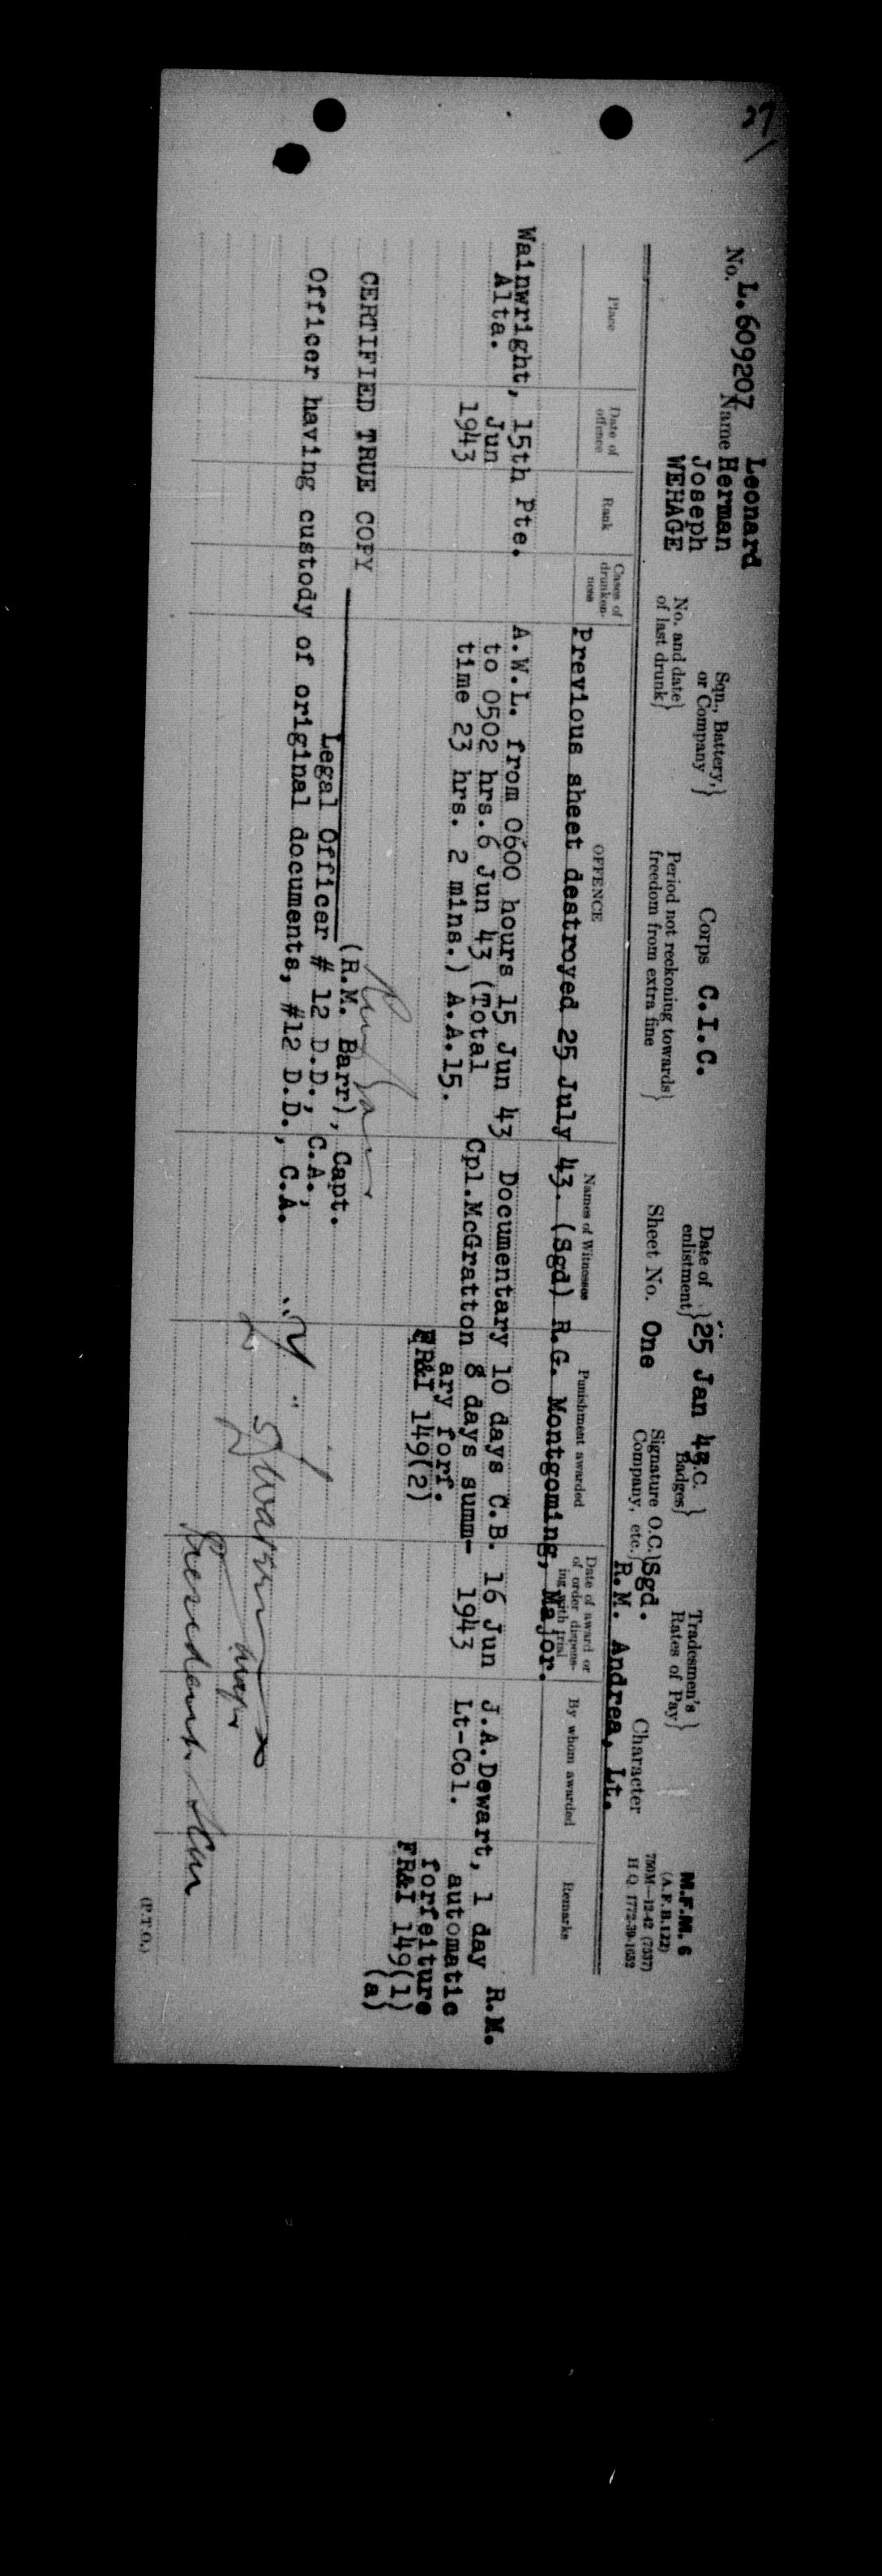 27
M.F.M. 6
(A.F.B.122)
750M—12-42 (7537)
H.Q. 1772-39-1652
No. L.609207 Name Leonard
Herman
Joseph
WEHAGE
Sqn., Battery,
or Company
Corps C.I.C.
Date of
enlistment 25 Jan 43
G.C.
Badges
Tradesmen's
Rates of Pay
No. and date
of last drunk
Period not reckoning towards
freedom from extra fine
Sheet No. One
Signature O.C.
Company, etc.
Sgd.
R.M. Andrea, Lt.
Character
Place
Date of
offence
Rank
Cases of
drunken-
ness
OFFENCE
Names of Witnesses
Punishment awarded
Date of award or
of order dispens-
ing with trial
By whom awarded
Remarks
Previous sheet destroyed 25 July 43. (Sgd) R.G. Montgoming, Major.
Wainwright, 15th Pte. A.W.L. from 0600 hours 15 Jun 43 Documentary 10 days C.B. 16 Jun J.A.Dewart, 1 day R.M.
Alta. Jun to 0502 hrs.6 Jun 43 (Total Cpl.McGratton 8 days summ- 1943 Lt-Col. automatic
1943 time 23 hrs. 2 mins.) A.A.15. ary forf. forfeiture
FR&I 149(2) FR&I 149(1)
(a)
CERTIFIED TRUE COPY
(R.M. Barr), Capt.
Legal Officer # 12 D.D., C.A.,
Officer having custody of original documents, #12 D.D., C.A.
"Y"
Major
President
(P.T.O.)